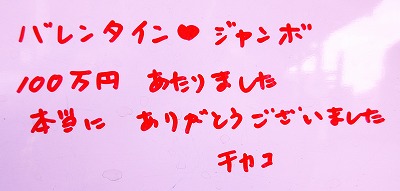 バレンタイン♥ジャンボ
100万円 あたりました
本当に ありがとうございました
チカコ